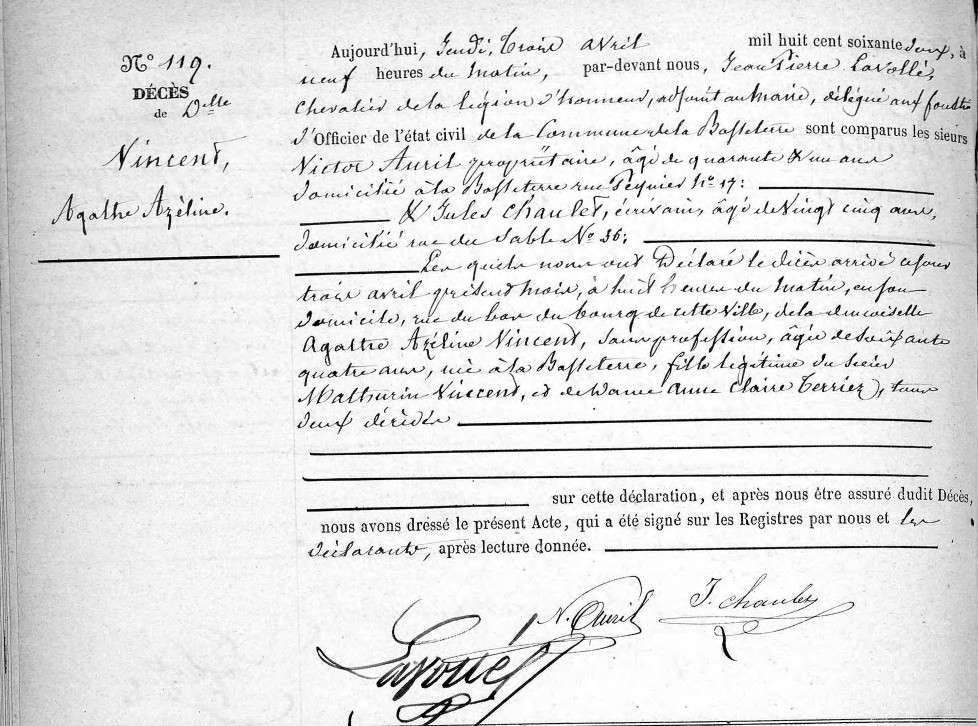 N° 119.
DÉCÈS
de Delle
Vincent,
Agathe Azéline.
Aujourd'hui, Jeudi, trois avril mil huit cent soixante deux, à
neuf heures du Matin, par-devant nous, Jean Pierre Lavollé,
Chevalier de la légion d'honneur, adjoint au Maire, délégué aux fonctions
d'Officier de l'état civil de la Commune de la Basseterre sont comparus les sieurs
Victor Auril propriétaire, âgé de quarante & un ans
domicilié à la Basseterre rue Peynier N° 17:
& Jules Chaulet, écrivain, âgé de Vingt cinq ans,
domicilié rue du Sable N° 36;
Les quels nous ont Déclaré le décès arrivé ce jour
trois avril présent mois, à huit heures du Matin, en son
domicile, rue du bas du bourg de cette Ville, de la demoiselle
Agathe Azéline Vincent, sans profession, âgée de soixante
quatre ans, née à la Basseterre, fille légitime du sieur
Mathurin Vincent, et de dame Anne Claire Terrier, tous
deux décédés
sur cette déclaration, et après nous être assuré dudit Décès,
nous avons dressé le présent Acte, qui a été signé sur les Registres par nous et les
déclarants, après lecture donnée.
V. Auril J. Chaulet
Lavollé